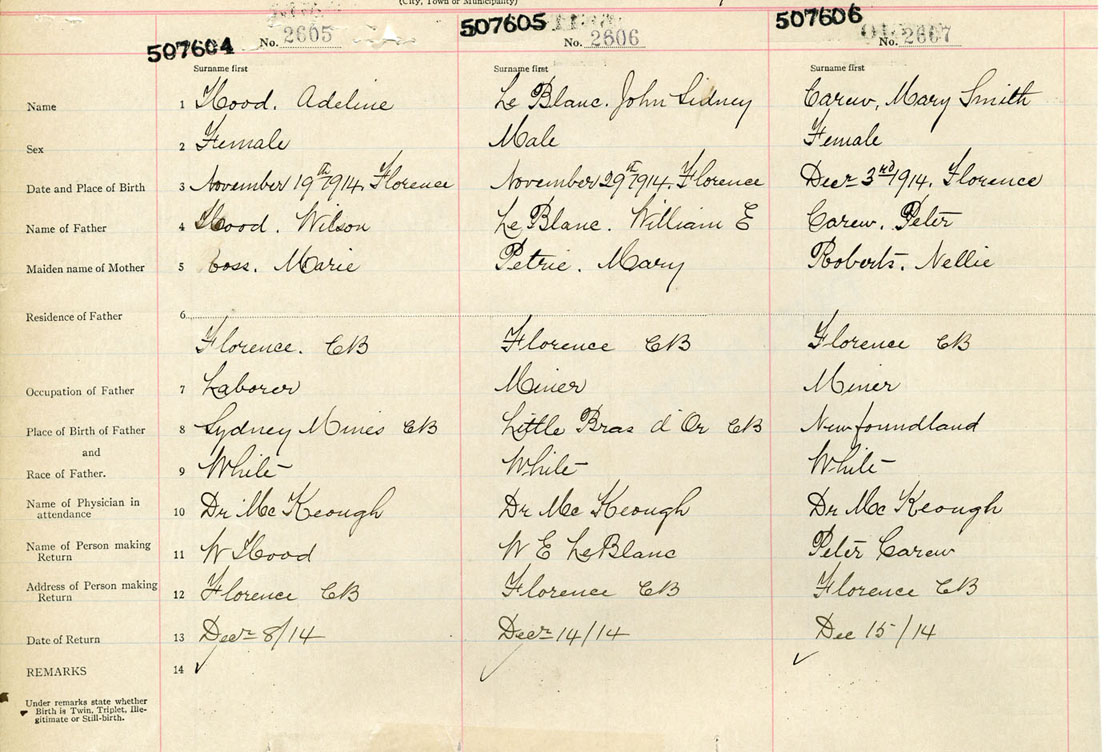 (City, Town or Municipality)
507604 No. 2605 507605 No. 2606 507606 No. 2667
Surname first Surname first Surname first
Name 1 Hood. Adeline Le Blanc. John Sidney Carew, Mary Smith
Sex 2 Female Male Female
Date and Place of Birth 3 November 19th 1914. Florence November 29th 1914. Florence Decr 3rd 1914. Florence
Name of Father 4 Hood. Wilson Le Blanc. William E Carew. Peter
Maiden name of Mother 5 Marie Petrie. Mary Roberts. Nellie
Residence of Father 6
Florence. CB Florence CB Florence CB
Occupation of Father 7 Laborer Miner Miner
Place of Birth of Father 8 Sydney Mines CB Little Bras d'Or CB Newfoundland
and
Race of Father. 9 White White White
Name of Physician in
attendance 10 Dr McKeough Dr McKeough Dr McKeough
Name of Person making
Return 11 W Hood W E LeBlanc Peter Carew
Address of Person making
Return 12 Florence CB Florence CB Florence CB
Date of Return 13 Decr 8/14 Decr 14/14 Dec 15/14
REMARKS 14
Under remarks state whether
Birth is Twin, Triplet, Ille-
gitimate or Still-birth.